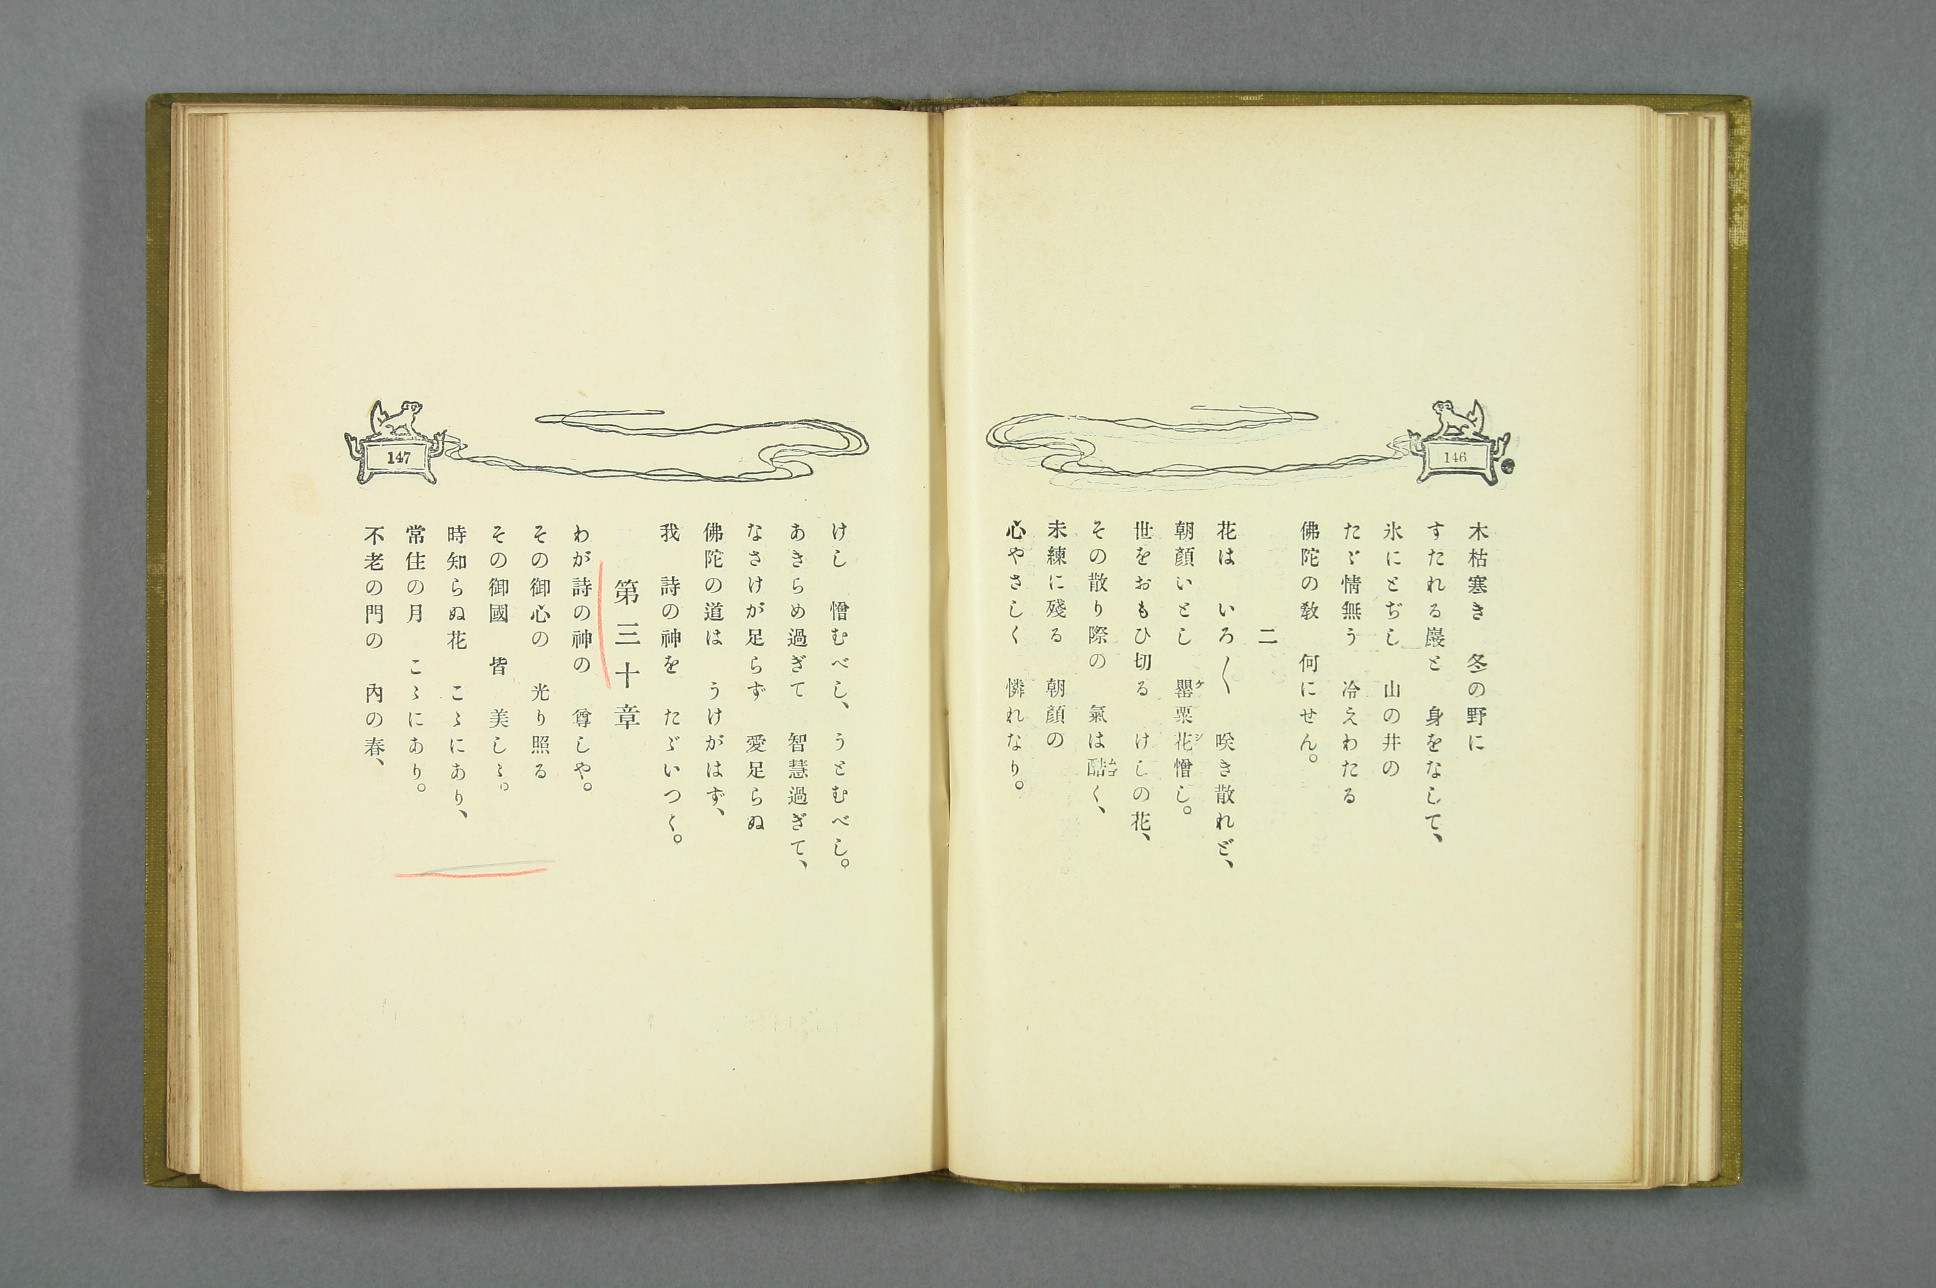 146
木枯寒き　冬の野に
すたれる巖と　身をなして、
氷にとぢし　山の井の
たゞ情無う　冷えわたる
佛陀の敎　何にせん。
二
花は　いろ〳〵　咲き散れど、
朝顔いとし　罌粟花憎し。
世をおもひ切る　けしの花、
その散り際の　氣は酷く、
未練に殘る　朝顔の
心やさしく　憐れなり。
147
けし　憎むべし、うとむべし。
あきらめ過ぎて　智慧過ぎて、
なさけが足らず　愛足らぬ
佛陀の道は　うけがはず、
我　詩の神を　たゞいつく。
第三十章
わが詩の神の　尊しや。
その御心の　光り照る
その御國　皆　美しゝ。
時知らぬ花　こゝにあり、
常住の月　こゝにあり。
不老の門の　內の春、